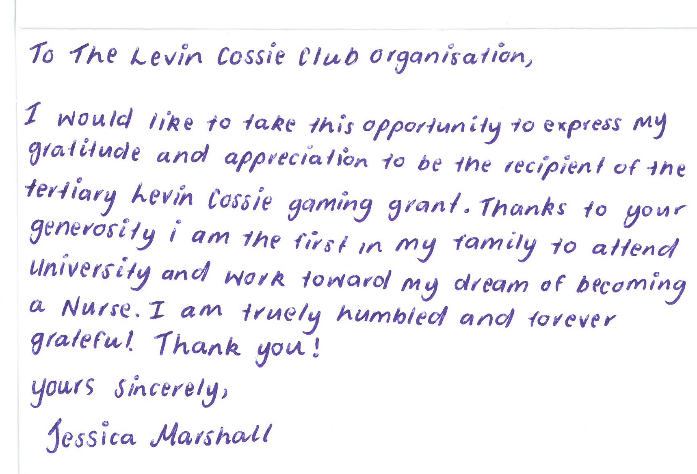 To The Levin Cossie Club Organisation,
I would like to take this opportunity to express my
gratitude and appreciation to be the recipient of the
tertiary Levin Cossie gaming grant. Thanks to your
generosity i am the first in my family to attend
University and work toward my dream of becoming
a Nurse. I am truely humbled and forever
grateful. Thank you!
yours sincerely,
Jessica Marshall